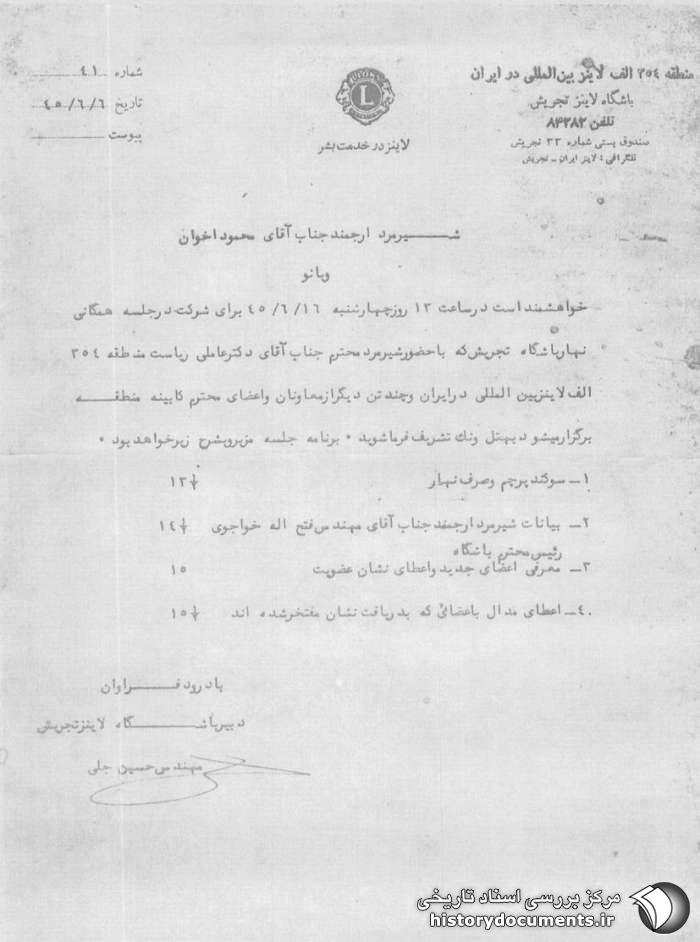 منطقه ۳۵٤ الف لاینز بین‌المللی در ایران
باشگاه لاینز تجریش
تلفن ۸۴۲۸۲
صندوق پستی شماره ۳۳ تجریش
تلگرافی: لاینز ایران ـ تجریش
LIONS
L
لاینز در خدمت بشر
شماره ٤۱
تاریخ ٤٥/٦/٦
پیوست
شیرمرد ارجمند جناب آقای محمود اخوان
وبانو
خواهشمند است در ساعت ۱۳ روز چهارشنبه ٤٥/٦/۱٦ برای شرکت در جلسه همگانی
نهار باشگاه تجریش که با حضور شیرمرد محترم جناب آقای دکتر عاملی ریاست منطقه ۳٥٤
الف لاینز بین المللی در ایران و چند تن دیگر از معاونان و اعضای محترم کابینه منطقه
برگزار میشود بهتل ونک تشریف فرما شوید ۰ برنامه جلسه مزبور بشرح زیر خواهد بود ۰
۱ـ سوگند پرچم و صرف نهار ۱۳↓
۲ـ بیانات شیرمرد ارجمند جناب آقای مهندس فتح اله خواجوی ۱٤↓
رئیس محترم باشگاه
۳ـ معرفی اعضای جدید و اعطای نشان عضویت ۱٥
٤ـ اعطای مدال باعضائی که بدریافت نشان مفتخر شده اند ۱٥↓
با درود فراوان
دبیر باشگاه لاینز تجریش
مهندس حسین جلی
مرکز بررسی اسناد تاریخی
historydocuments.ir